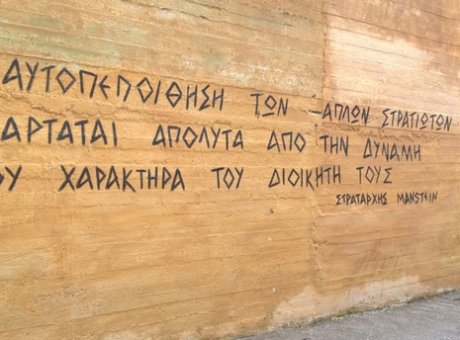 ΑΥΤΟΠΕΠΟΙΘΗΣΗ ΤΩΝ ΑΠΛΩΝ ΣΤΡΑΤΙΩΤΩΝ
ΑΡΤΑΤΑΙ ΑΠΟΛΥΤΑ ΑΠΟ ΤΗΝ ΔΥΝΑΜΗ
ΟΥ ΧΑΡΑΚΤΗΡΑ ΤΟΥ ΔΙΟΙΚΗΤΗ ΤΟΥΣ
ΣΤΡΑΤΑΡΧΗΣ MANSTEIN